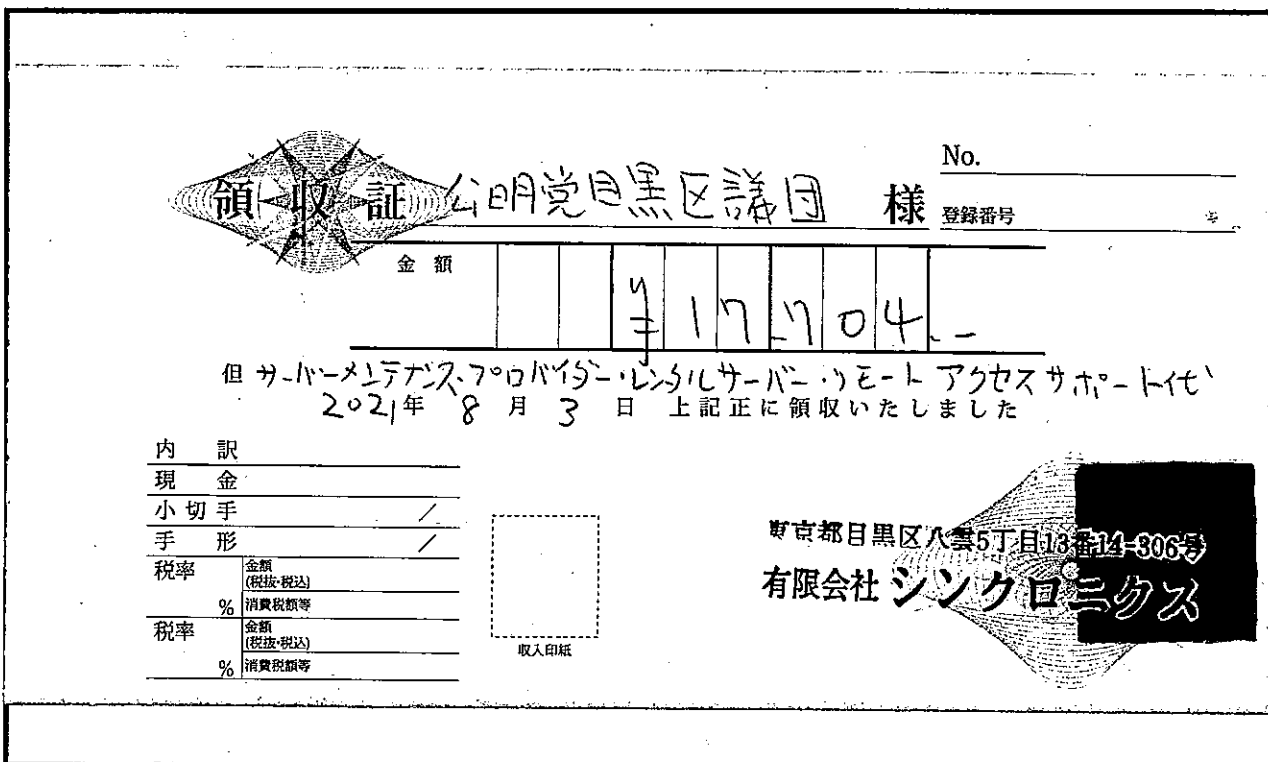 No.
領収証 公明党目黒区議団 様
登録番号
金額
¥17,704.-
但 サーバーメンテナンス・プロバイダー・レンタルサーバー・リモートアクセスサポート代
2021年 8月 3日 上記正に領収いたしました
内訳
現金
小切手 /
手形 /
税率 金額(税抜・税込)
% 消費税額等
税率 金額(税抜・税込)
% 消費税額等
収入印紙
東京都目黒区八雲5丁目13番14-306号
有限会社 シンクロニクス